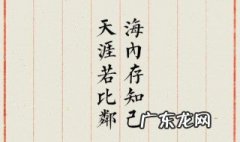 海內存知己
天涯若比鄰
广东龙网